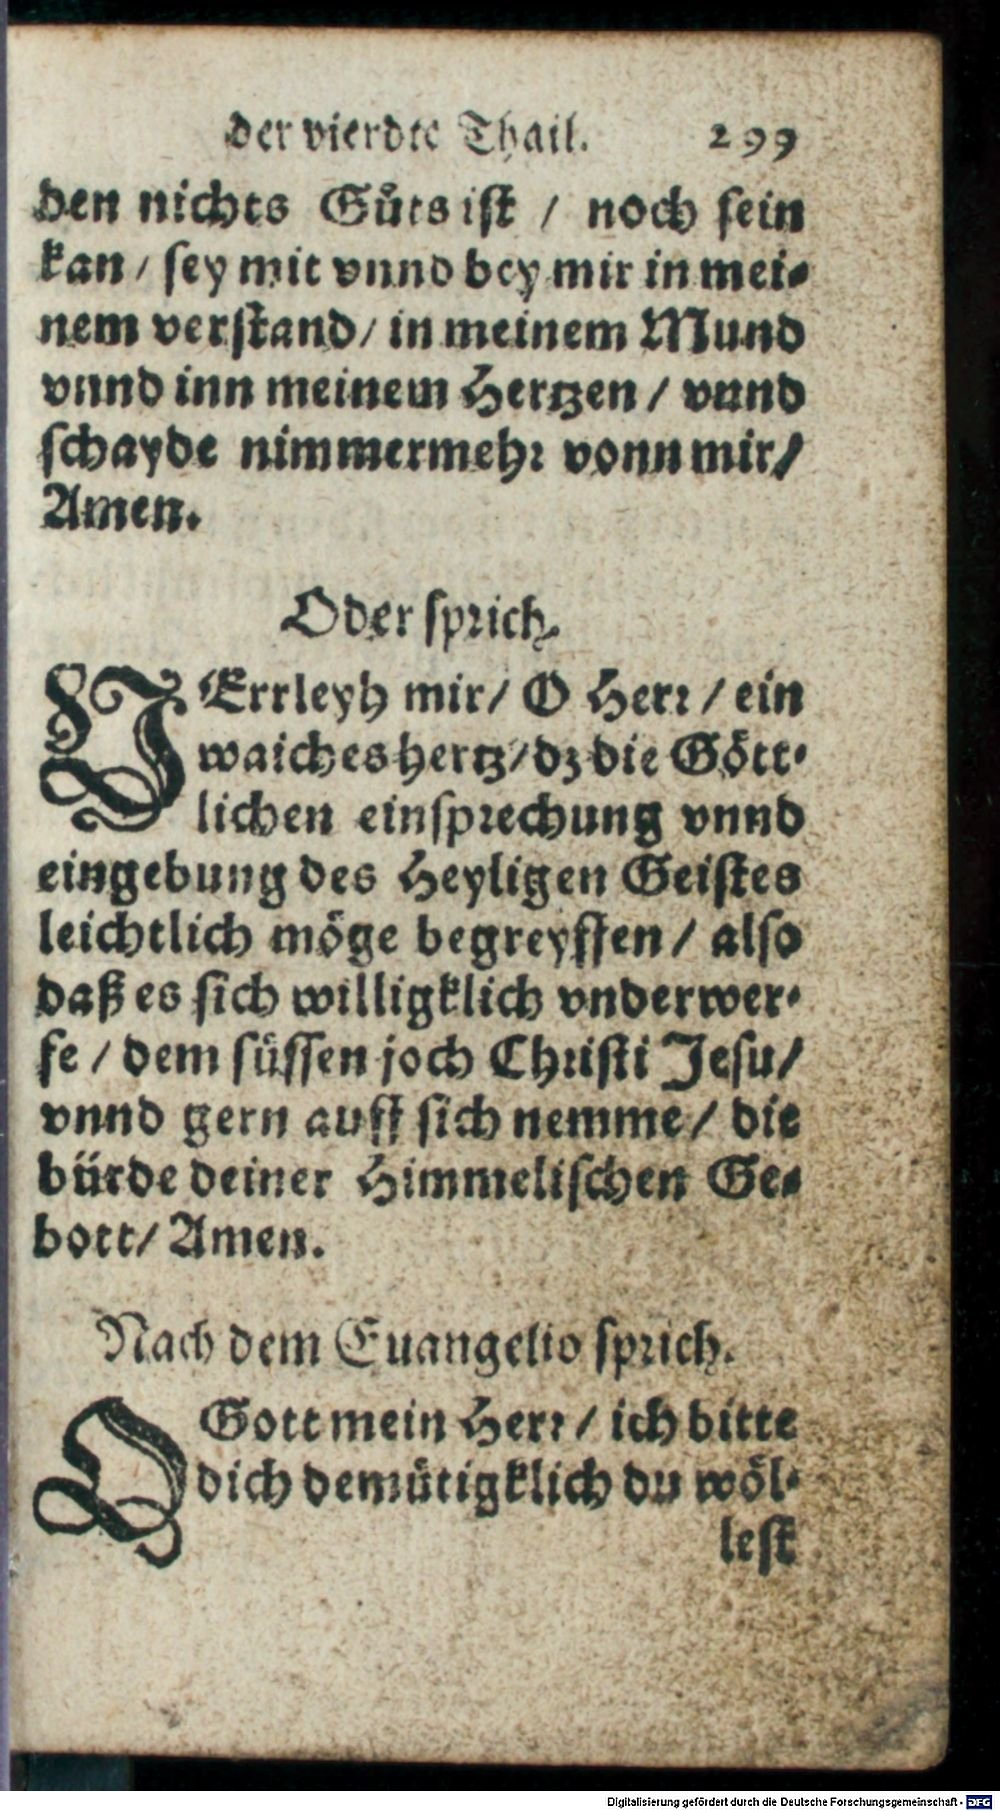 der vierdte Thail. 299
den nichts Gůts ist / noch sein
kan / sey mit vnnd bey mir in mei-
nem verstand / in meinem Mund
vnnd inn meinem Hertzen / vnnd
schayde nimmermehr vonn mir /
Amen.
Oder sprich.
VErrleyh mir / O Herr / ein
waiches hertz / dz die Gött-
lichen einsprechung vnnd
eingebung des Heyligen Geistes
leichtlich möge begreyffen / also
daß es sich willigklich vnderwer-
fe / dem süssen joch Christi Jesu /
vnnd gern auff sich nemme / die
bürde deiner Himmelischen Ge-
bott / Amen.
Nach dem Euangelio sprich.
O Gott mein Herr / ich bitte
dich demütigklich du wöl-
lest
Digitalisierung gefördert durch die Deutsche Forschungsgemeinschaft - DFG